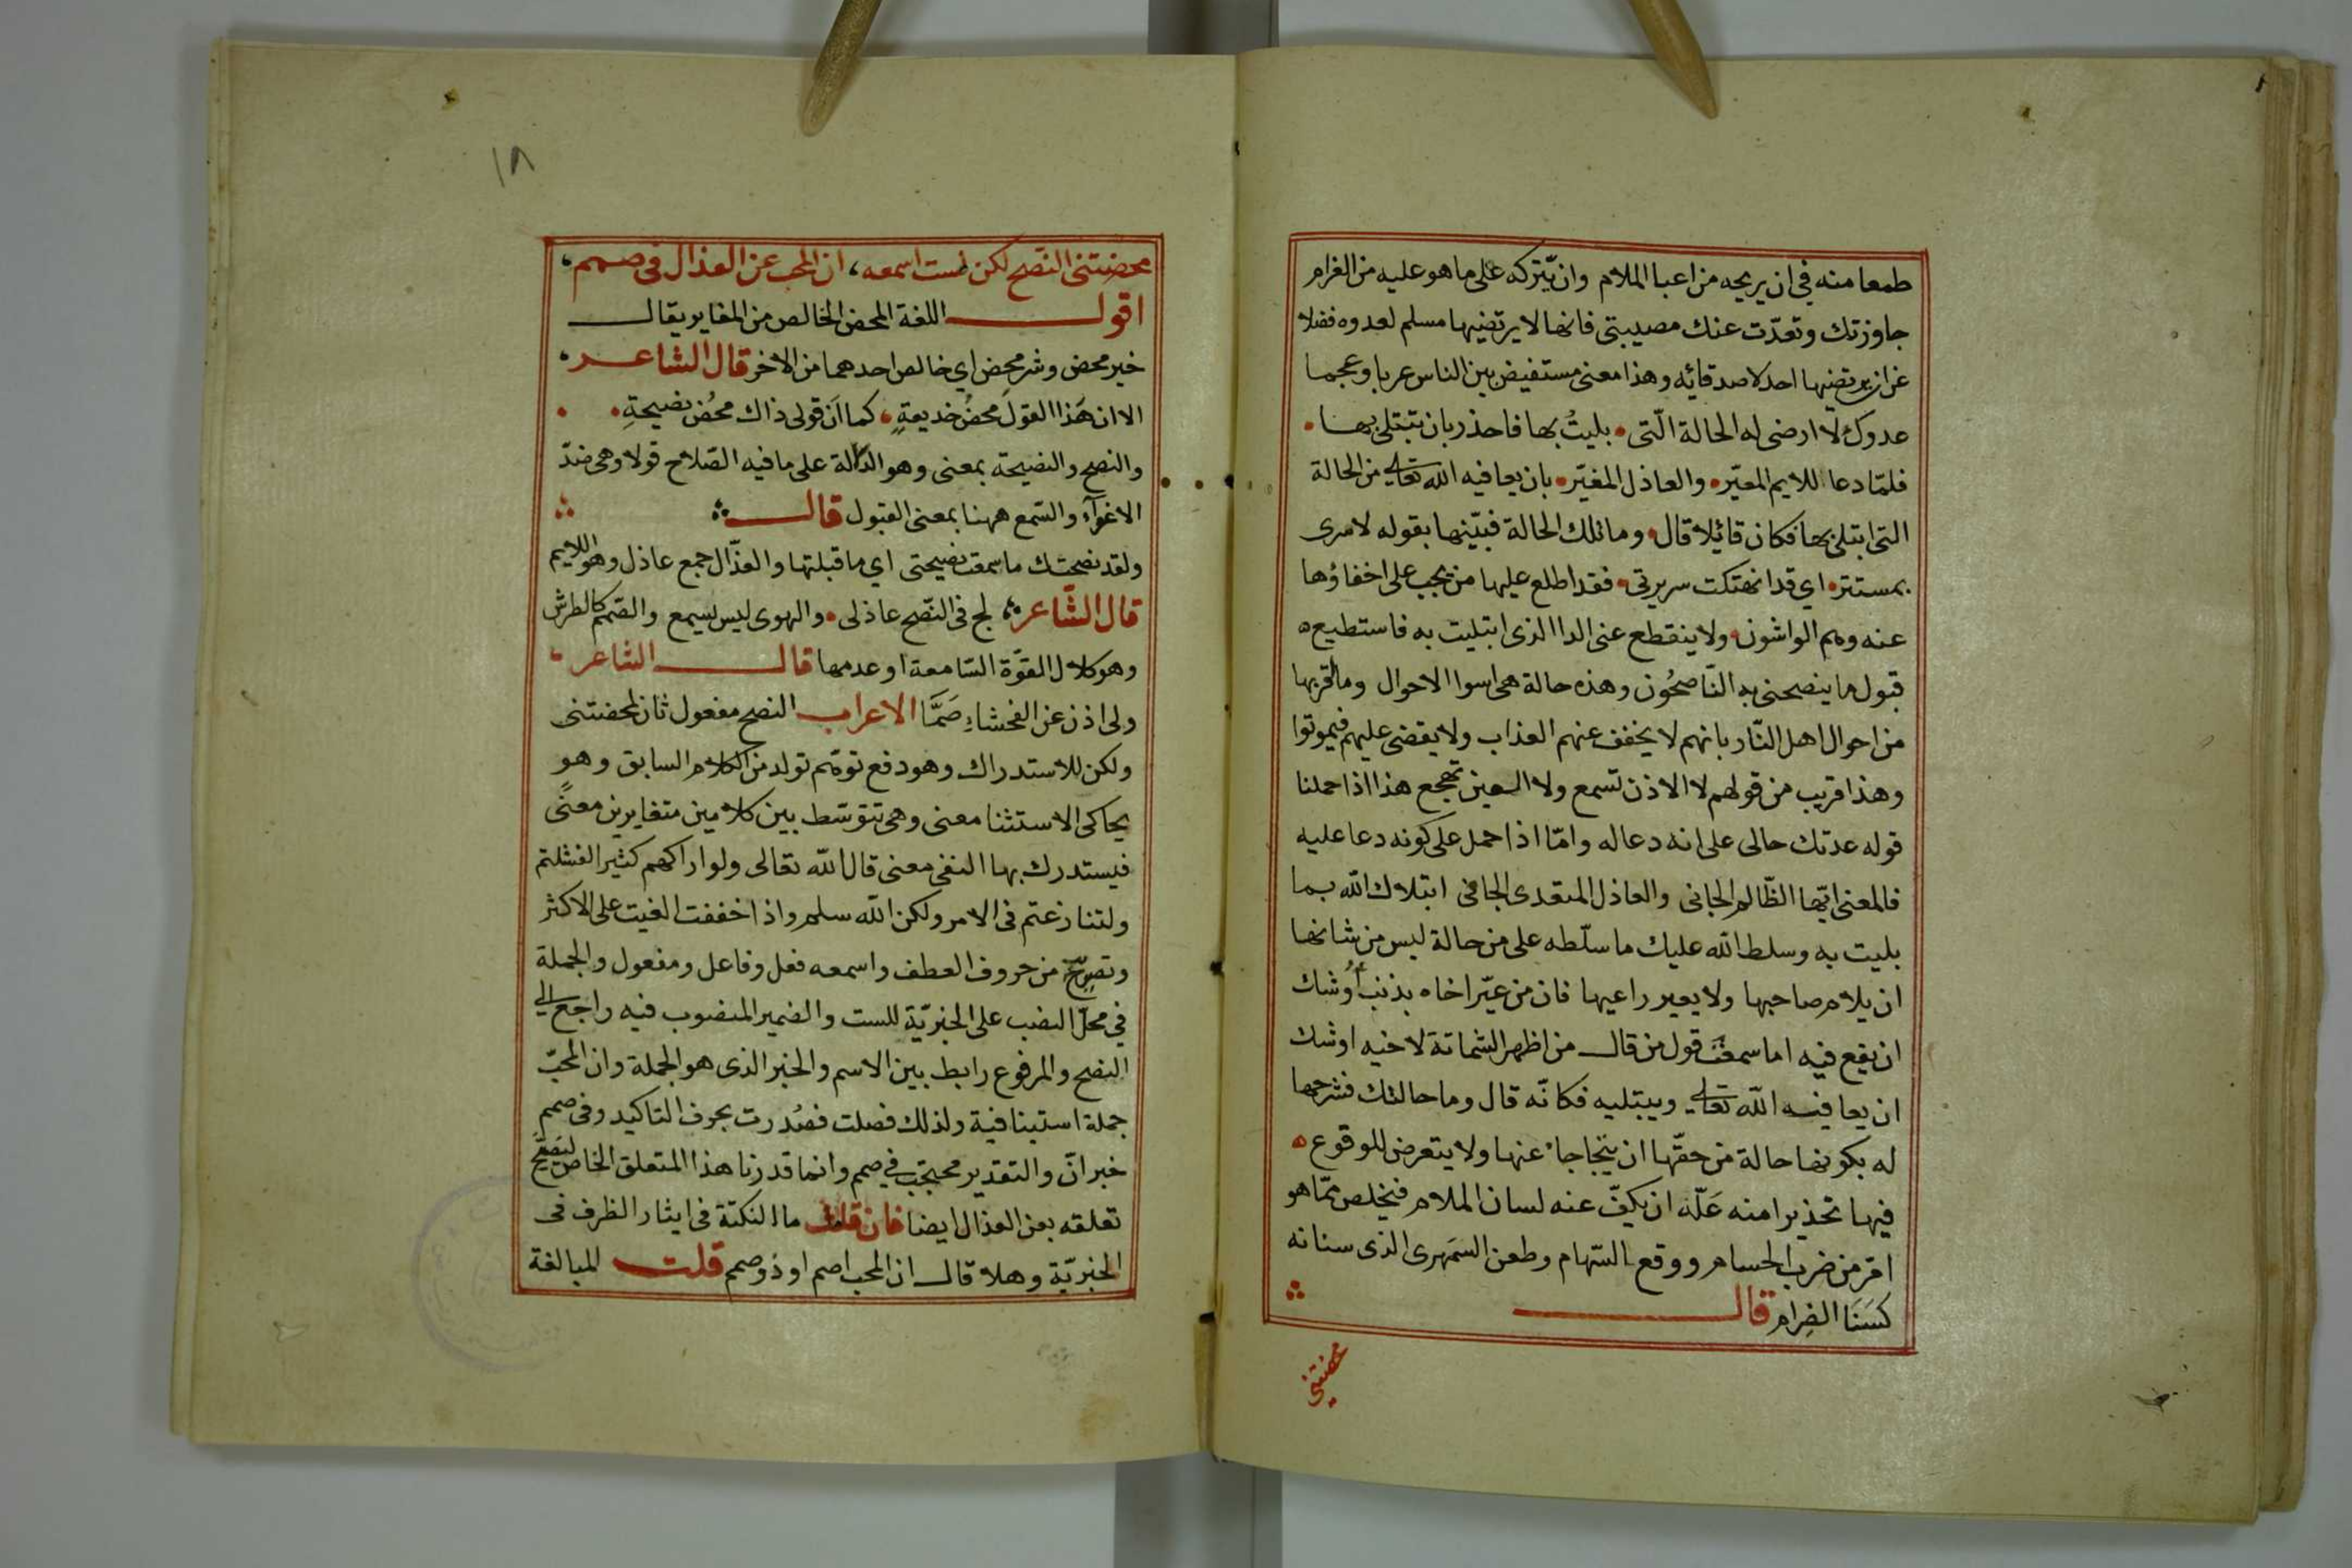 طمعا منه في ان يريحه من اعبا الملام وان يتركه على ما هو عليه من الغرام
جاوزتك وتعدّت عنك مصيبتى فانها لا يرتضيها مسلم لعدوه فضلا
عن ان يرتضيها احد لاصدقائه وهذا معنى مستفيض بين الناس عربا وعجما
عدوك لا ارضى له الحالة الّتى • بليتُ بها فاحذر بان تبتلى بها •
فلمّا دعا للايم المعيّر • والعاذل المغيّر • بان يعافيه الله تعالى من الحالة
التى ابتلى بها فكان قائلا قال • وما تلك الحالة فبيّنها بقوله لا سرى
بمستتر • اي قد انهتكت سريرتي • فقد اطلع عليها من يجب على اخفاؤها
عنه وهم الواشون • ولا ينقطع عنى الدا الذى ابتليت به فاستطيع ه
قبول ما ينصحنى به النّاصحُون وهذه حالة هى اسوا الاحوال وما اقربها
من احوال اهل النّار بانهم لا يخفف عنهم العذاب ولا يقضى عليهم فيموتوا
وهذا قريب من قولهم لا الاذن تسمع ولا العين تهجع هذا اذا حملنا
قوله عدتك حالى على انه دعا له وامّا اذا حمل على كونه دعا عليه
فالمعنى ايّها الظّالم الجانى والعاذل المتعدى الجافى ابتلاك الله بما
بليت به وسلط الله عليك ما سلّطه على من حالة ليس من شانها
ان يلام صاحبها ولا يعير راعيها فان من عيّر اخاه بذنب اوُشك
ان يقع فيه اما سمعت قول من قال من اظهر الشماتة لاخيه اوشك
ان يعافيه الله تعالى ويبتليه فكانّه قال وما حالتك فشرحها
له بكونها حالة من حقّها ان ينجا جا عنها ولا يتعرض للوقوع ه
فيها تحذيرا منه عَلّه ان يكفّ عنه لسان الملام فيخلص ممّا هو
اقر من ضرب الحسام ووقع السّهام وطعن السمَهرى الذى سنانه
كسَنَا الضِرام قال
محضتني
١٨
محضتنى النصح لكن لست اسمعه ، ان المحب عن العذال فى صمم
اقول اللغة المحض الخالص من المغاير يقال
خير محض وشر محض اي خالص احدهما من الاخر قال الشاعر
الا ان هَذا القولَ محضُ خديعةٍ • كما اَن قولى ذاك محُض نصيحةِ •
والنصح والنصيحة بمعنى وهو الدالة على ما فيه الصّلاح قولا وهى ضدّ
الاغوآء والسّمع ههنا بمعنى القبول قال
ولقد نصحتك ما سمعت نصيحتى اي ما قبلتها والعذّال جمع عاذل وهو اللايم
قال الشّاعر لج فى النّصح عاذلى • والهوى ليس يسمع والصّمم كالطرش
وهو كلال القوّة السّامعة او عدمها قال الشاعر
ولى اذن عن الفحشاءِ صَمَّا الاعراب النصح مفعول ثان لمحضتنى
ولكن للاستدراك وهو دفع توهّم تولد من الكلام السابق وهو
يحاكى الاستثنا معنى وهى تتوسّط بين كلامين متغايرين معنًى
فيستدرك بها النفى معنى قال الله تعالى ولو اراكهم كثيرا لفشلتم
ولتنازعتم فى الامر ولكن الله سلم واذا خففت الغيت على الاكثر
وتصحّ من حروف العطف واسمعه فعل وفاعل ومفعول والجملة
في محلّ النصب على الخبريّة للست والضمير المنصوب فيه راجع الى
النصح والمرفوع رابط بين الاسم والخبر الذى هو الجملة وان المحبّ
جملة استينافية ولذلك فصلت فصُدرت بحرف التاكيد وفى صمم
خبر انّ والتقدير محتجب في صمم وانما قدرنا هذا المتعلق الخاص ليَصِحّ
تعلقه بعن العذال ايضا فان قلت ما النكتة فى ايثار الظرف فى
الخبريّة وهلا قال ان المحب اصم او ذو صمم قلت للمبالغة